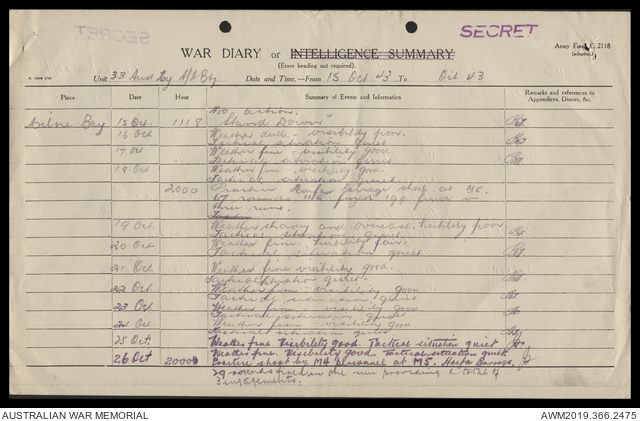 SECRET
SECRET
WAR DIARY or INTELLIGENCE SUMMARY
(Erase heading not required).
Army Form C. 2118
(adapted)
Unit 33 Aust Bty
Date and Time.—From 15 Oct 43 To Oct 43
Place Date Hour Summary of Events and Information Remarks and references to Appendices, Diaries, &c.
No action.
Milne Bay 15 Oct 1118 "Stand Down"
16 Oct Weather dull - visibility poor.
Tactical situation quiet
17 Oct Weather fine - visibility good
Tactical situation quiet
18 Oct Weather fine - visibility good
Tactical situation quiet.
2000 Practice shoot at
67 rounds H.E. fuzed 199 fired in
three runs.
19 Oct Weather showery and overcast. Visibility poor
Tactical situation quiet
20 Oct Weather fine. Visibility fair.
Tactical situation quiet
21 Oct Weather fine visibility good.
Tactical situation quiet.
22 Oct Weather fine - visibility good
Tactical situation quiet
23 Oct Weather fine visibility good.
Tactical situation quiet
24 Oct Weather fine visibility good
Tactical situation quiet
25 Oct Weather fine. Visibility good. Tactical situation quiet
26 Oct 2000 Weather fine. Visibility good Tactical situation quiet
Practice shoot by M4 personnel at M5.
29 rounds fired in one run providing a total of
3 engagements.
AUSTRALIAN WAR MEMORIAL
AWM2019.366.2475